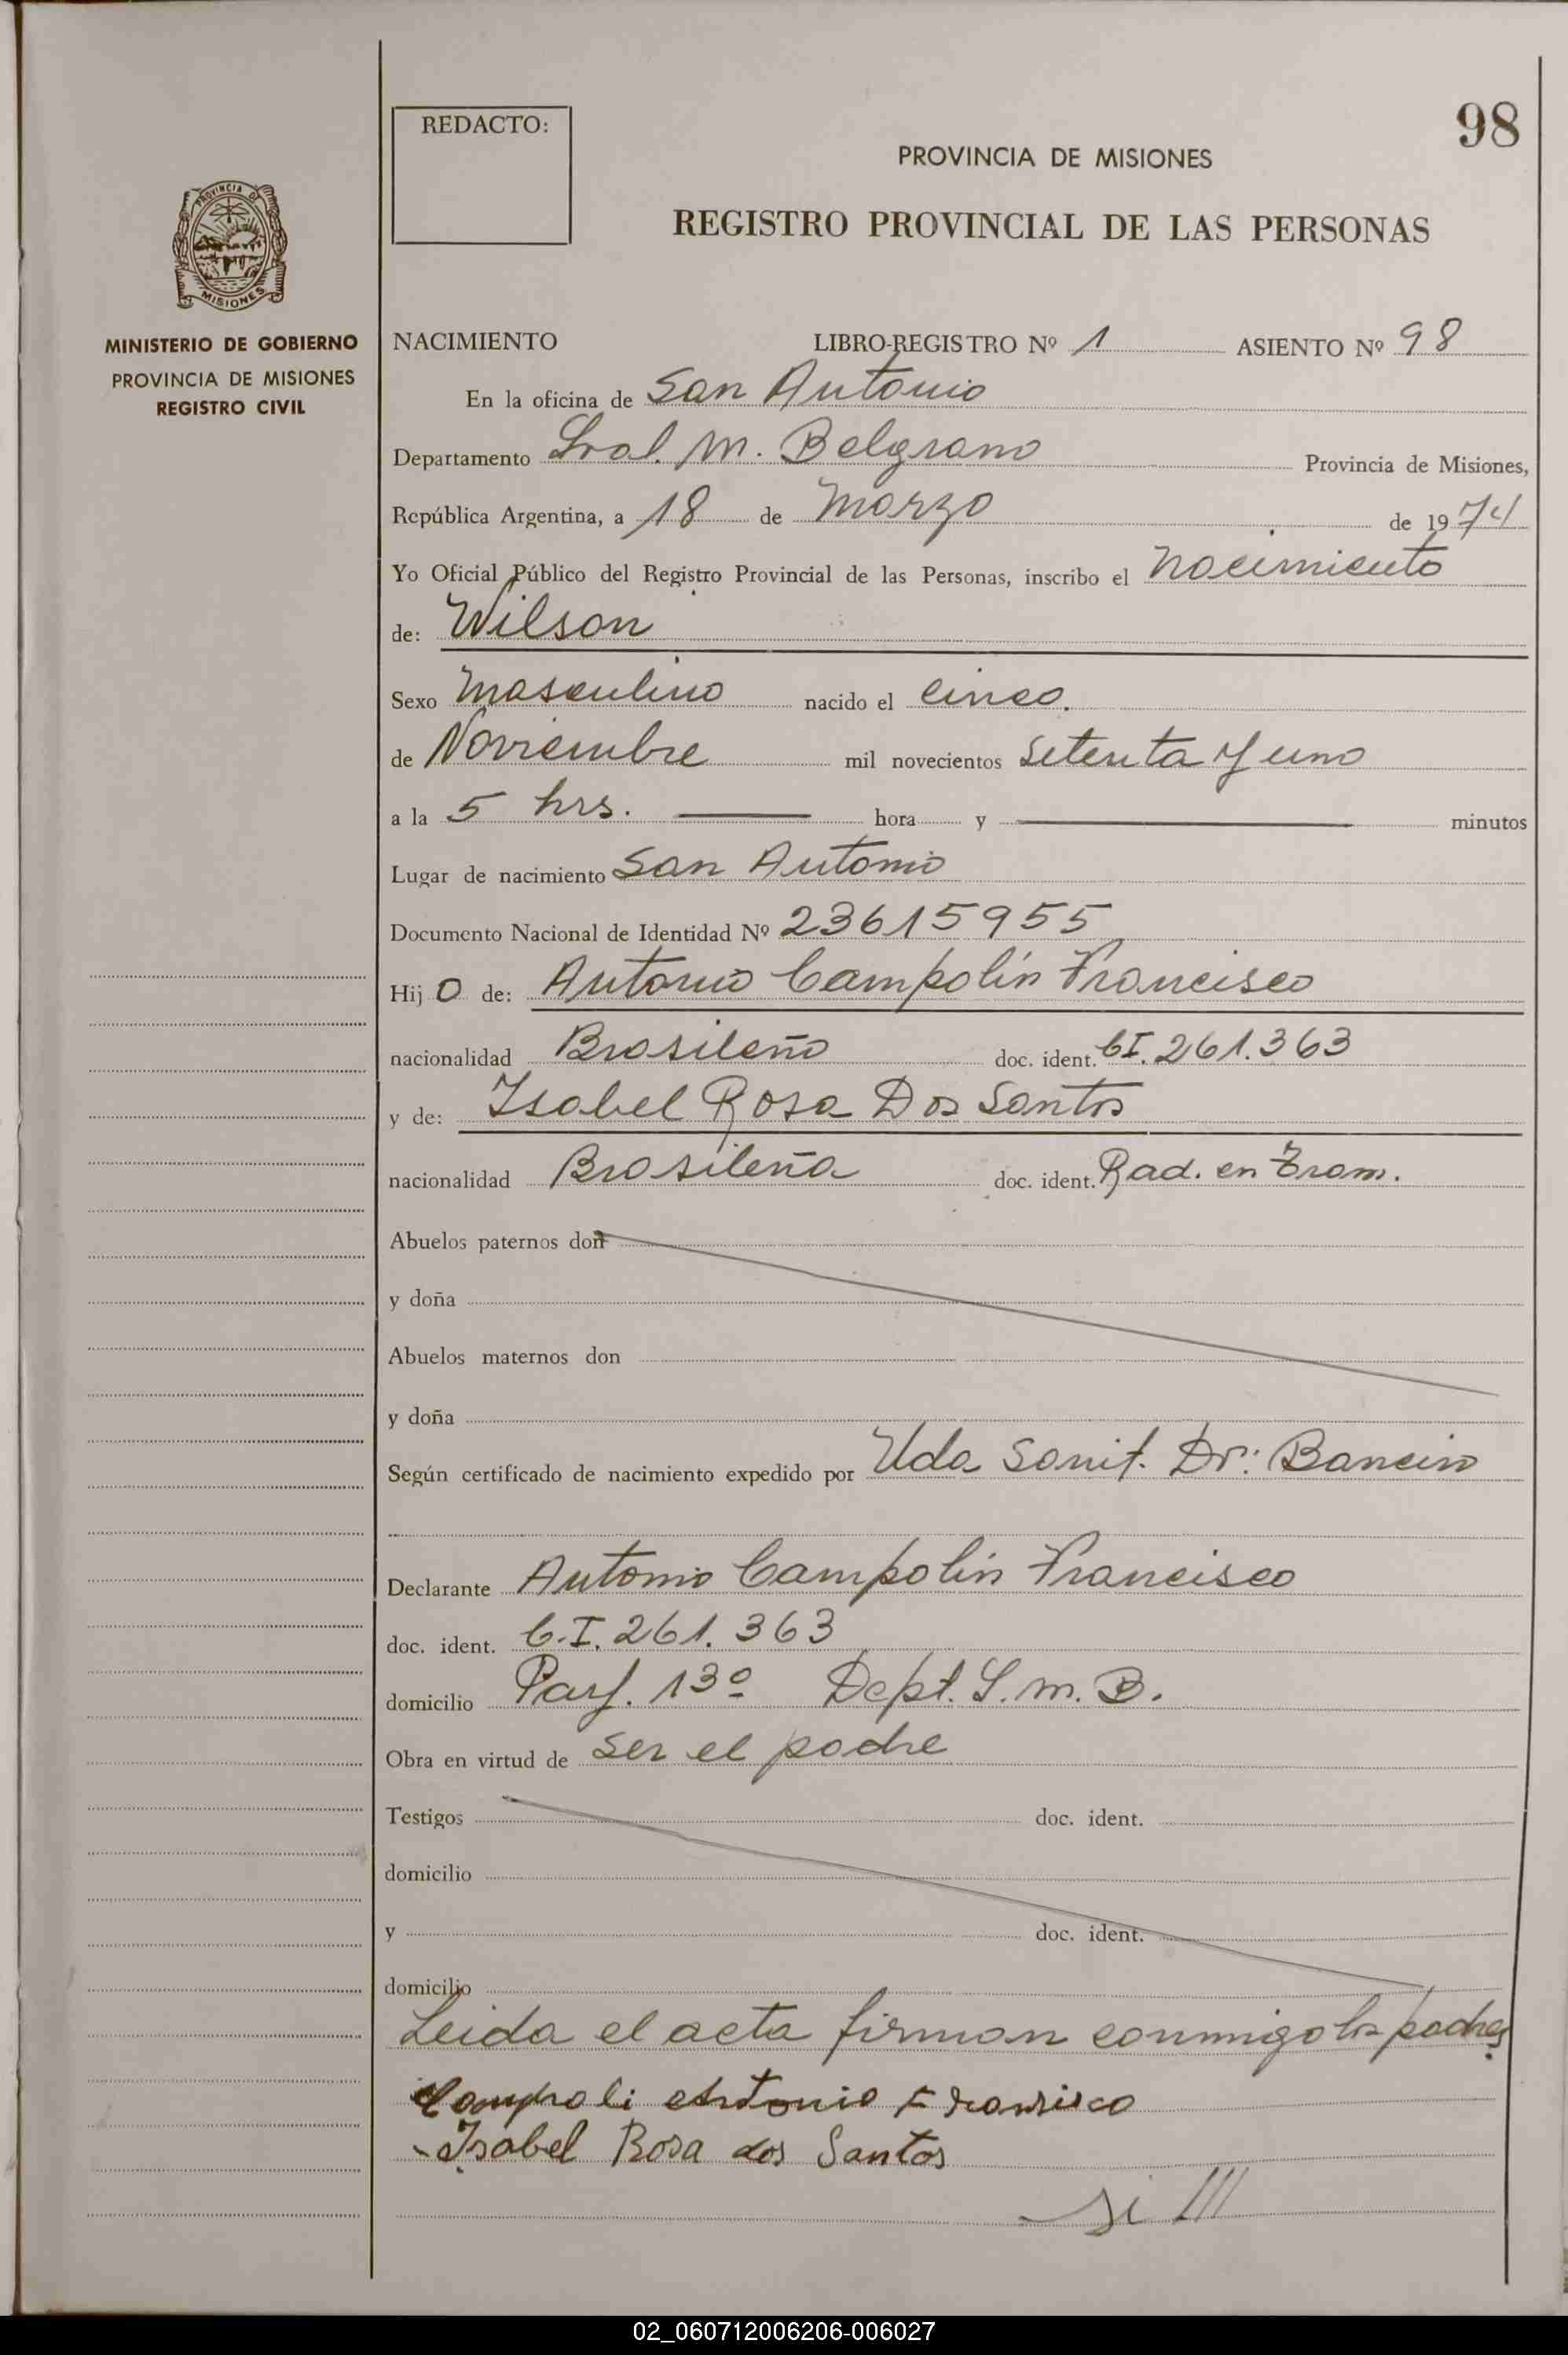 98
REDACTO:
PROVINCIA DE MISIONES
REGISTRO PROVINCIAL DE LAS PERSONAS
PROVINCIA DE
MISIONES
MINISTERIO DE GOBIERNO
PROVINCIA DE MISIONES
REGISTRO CIVIL
NACIMIENTO LIBRO-REGISTRO Nº 1 ASIENTO Nº 98
En la oficina de San Antonio
Departamento Gral. M. Belgrano Provincia de Misiones,
República Argentina, a 18 de Marzo de 1974
Yo Oficial Público del Registro Provincial de las Personas, inscribo el nacimiento
de: Wilson
Sexo Masculino nacido el cinco.
de Noviembre mil novecientos setenta y uno
a la 5 hrs. hora y minutos
Lugar de nacimiento San Antonio
Documento Nacional de Identidad Nº 23615955
Hij o de: Antonio Campolín Francisco
nacionalidad Brasileño doc. ident. CI. 261.363
y de: Isabel Rosa Dos Santos
nacionalidad Brasileña doc. ident. Rad. en Tram.
Abuelos paternos don
y doña
Abuelos maternos don
y doña
Según certificado de nacimiento expedido por Uda Sanit. Dr:
Declarante Antonio Campolín Francisco
doc. ident. C.I. 261.363
domicilio Parj. 13º Dept. G.M.B.
Obra en virtud de ser el padre
Testigos doc. ident.
domicilio
y doc. ident.
domicilio
Leida el acta firman conmigo los padres
Campoli Antonio Francisco
Isabel Rosa dos Santos
02_060712006206-006027